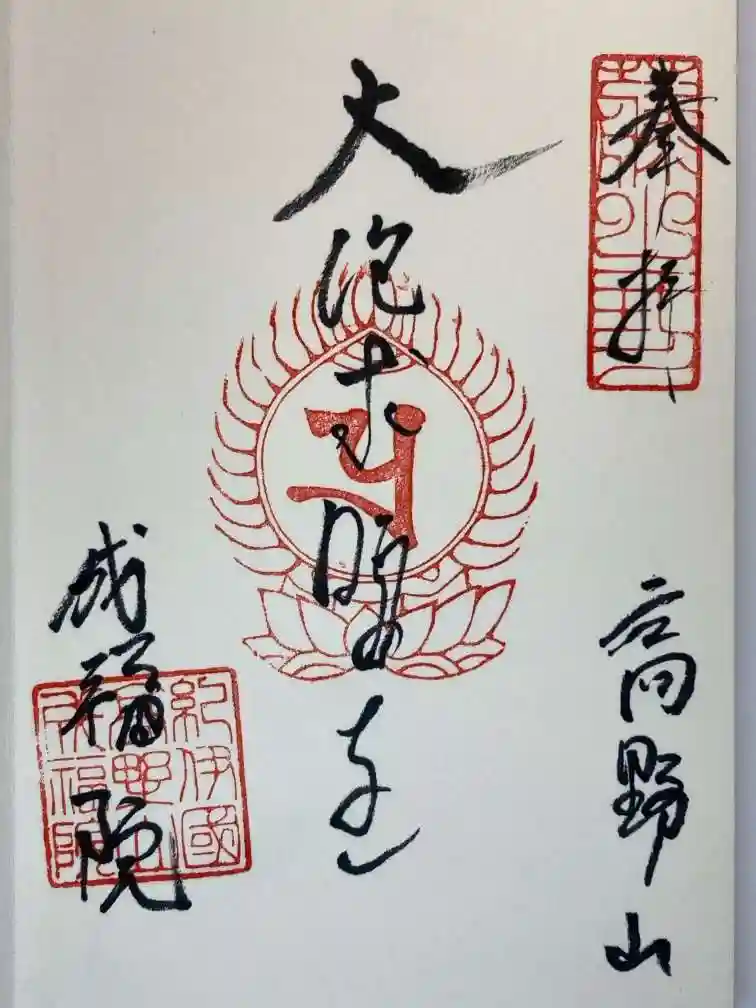 奉拝
高野山
大随求明王
成福院
紀伊國
高野山
成福院